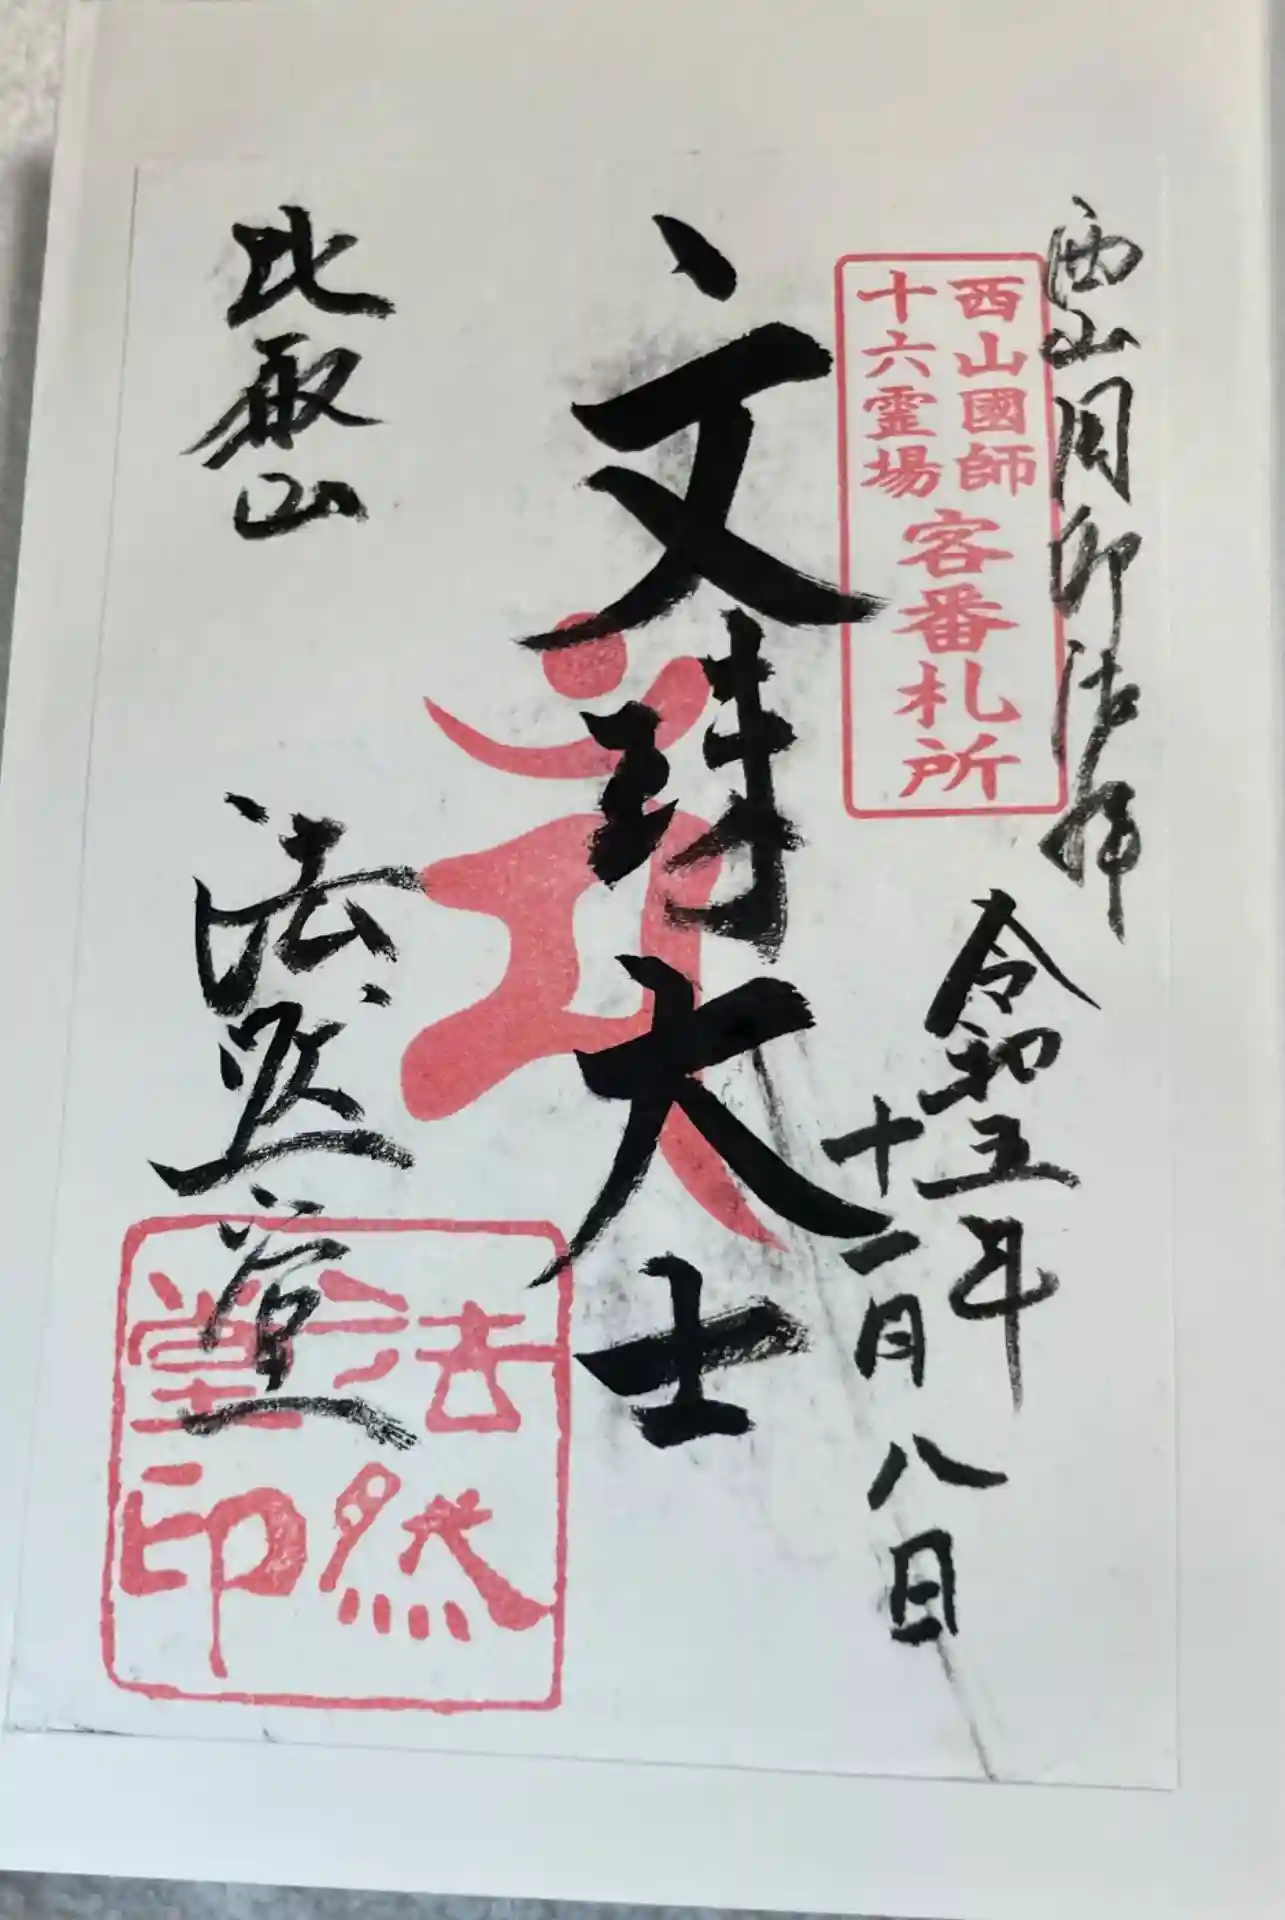 西山
西山國師
十六霊場
客番札所
令和五年
十一月八日
文殊大士
比叡山
法然堂
法然
堂印